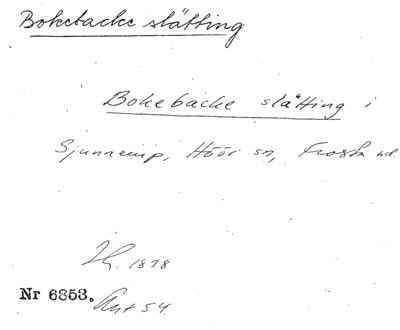 Bokebacke slåtting
Bokebacke slåtting i
Sjunnerup, Höör sn, Frosta hd.
1898
Nr 6853. Ant 54.